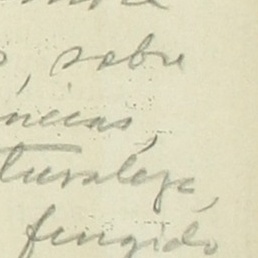 , sobre
necias,
turaleza,
fingido